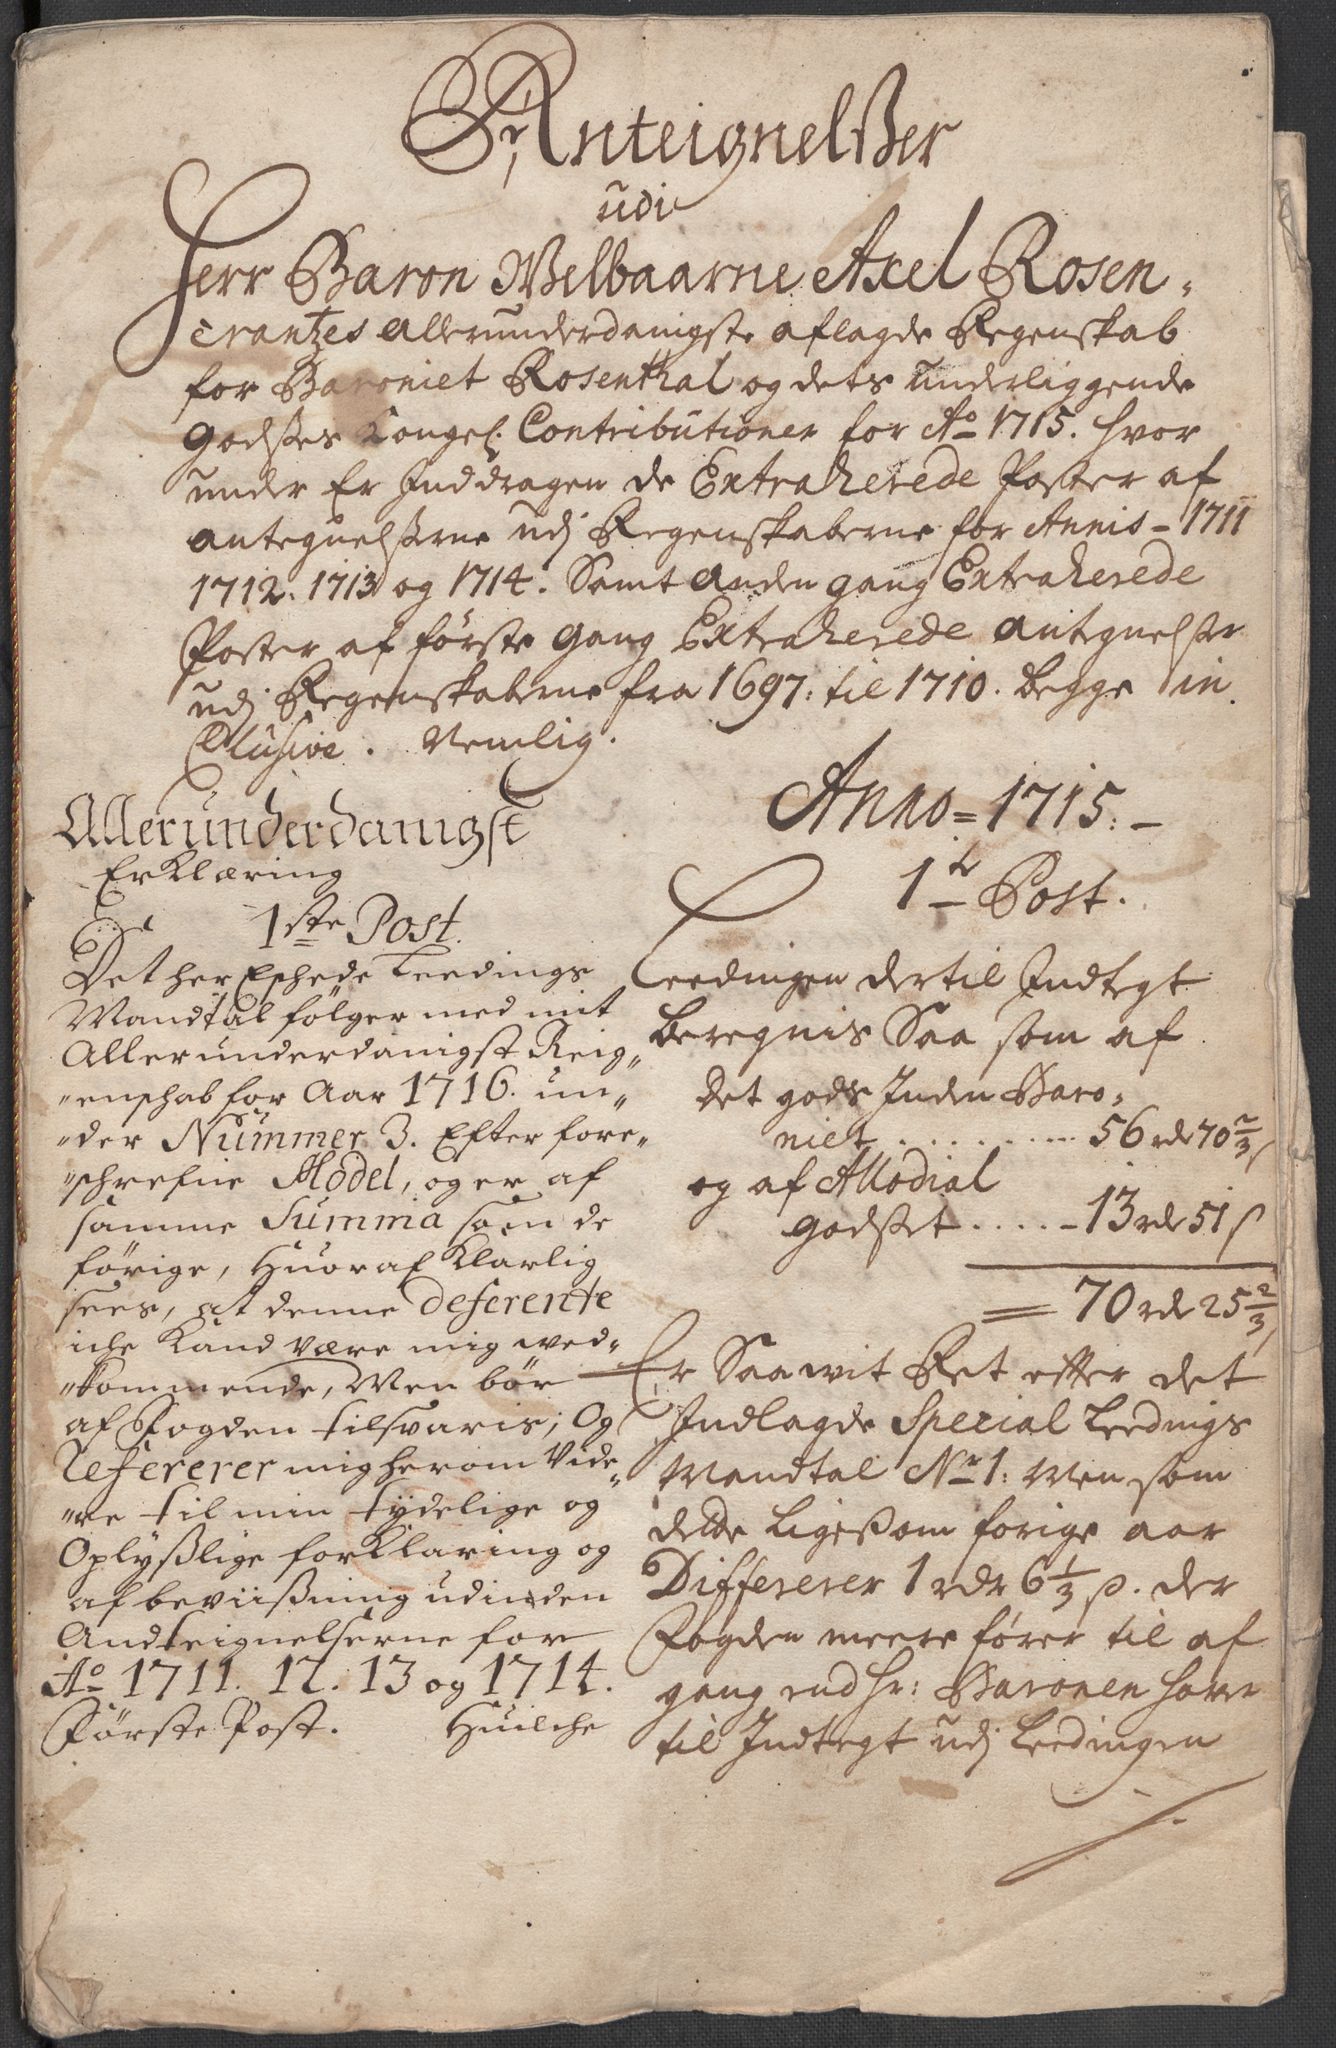 Anteignelßer
udi
Herr Baron Welbaarne Axel Rosen-
crantzes allerunderdanigste aflagde Regenskab
for Baroniet Rosenthal og dets underliggende
Godsses Kongel. Contributioner for Ao 1715. hvor
under Er Inddragen de Extraherede Poster af
antegnelsserne udj Regenskaberne for Annis - 1711
1712. 1713 og 1714. Samt anden gang Extraherede
Poster af første Gang Extraherede antegnelsser
udj Regenskaberne fra 1697. til 1710. begge in
Clusive. Nemlig.
Allerunderdanigst
ErKlæring
1ste Post
Det her Eschede Leedings
Mandtal følger med mit
Allerunderdanigst Reig„
„enschab for Aar 1716. un„
„der Nummer 3. Efter fore„
„schrefne Model, og er af
samme Summa som de
førige, Huoraf Klarlig
sees, at denne deferente
iche Kand være mig wed„
„kommende, Men bør
af Fogden tilsvaris; Og
Refererer mig herom Vide„
„re til min tydelige og
Oplyßlige forKlaring og
af beviißning udinden
Andteignelserne for
Ao 1711. 12. 13 og 1714.
Første Post. Huilche
Anno = 1715. -
1te Post.
Leedingen dertil Indtegt
beregnis Saa som af
det gods Inden Baro-
niet . . . . . . . . . 56 rdr 70 2/3 s
og af Allodial
godsset . . . . . - 13 rdr 51 s
= 70 rdr 25 2/3 s
Er Saawit Ret efter det
Indlagde Special Leedings
Mandtal No 1: Men som
dette ligesom forige aar
Differerer 1 rdr 6 1/3 s. der
Fogden meere fører til af
gang end Hr: Baronen harer
til Indtegt udj Leedingen